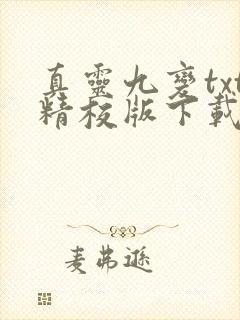 真靈九變txt
精校版下載
麦弗遜